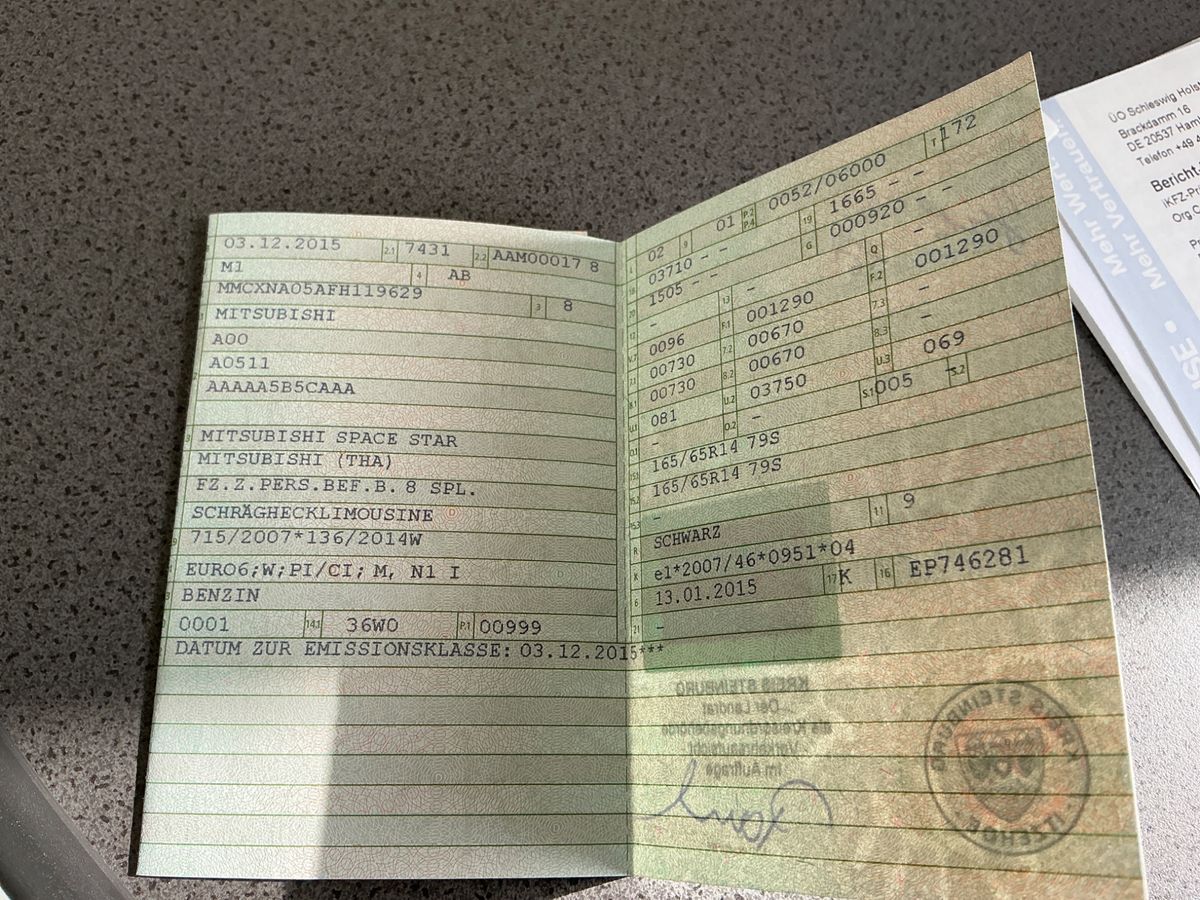 03.12.2015 2.1 7431 2.2 AAM00017 8
M1 4 AB
MMCXNA05AFH119629 3 8
MITSUBISHI
A00
A0511
AAAAA5B5CAAA
MITSUBISHI SPACE STAR
MITSUBISHI (THA)
FZ.Z.PERS.BEF.B. 8 SPL.
SCHRÄGHECKLIMOUSINE
715/2007*136/2014W
EURO6;W;PI/CI; M, N1 I
BENZIN
0001 14.1 36W0 P.1 00999
DATUM ZUR EMISSIONSKLASSE: 03.12.2015***
02 9 01 P.2 P.4 0052/06000 T 172
03710 - - 19 1665 - -
1505 - - G 000920 -
- 13 - Q -
0096 F.1 001290 F.2 001290
00730 7.2 00670 7.3 -
00730 8.2 00670 8.3 -
081 U.2 03750 U.3 069
- O.2 - S.1 005 S.2
165/65R14 79S
165/65R14 79S
-
R SCHWARZ 11 9
K e1*2007/46*0951*04
6 13.01.2015 17 K 16 EP746281
21 -
KREIS STEINBURG
Der Landrat
als Kreisordnungsbehörde
Verkehrsaufsicht
Im Auftrage
KREIS STEINBURG
ITZEHOE
ÜO Schleswig Holst
Brackdamm 16
DE 20537 Ham
Telefon +49 4
Bericht-
iKFZ-Pr
Org.C
Mehr Wert.
Mehr Vertrauen.